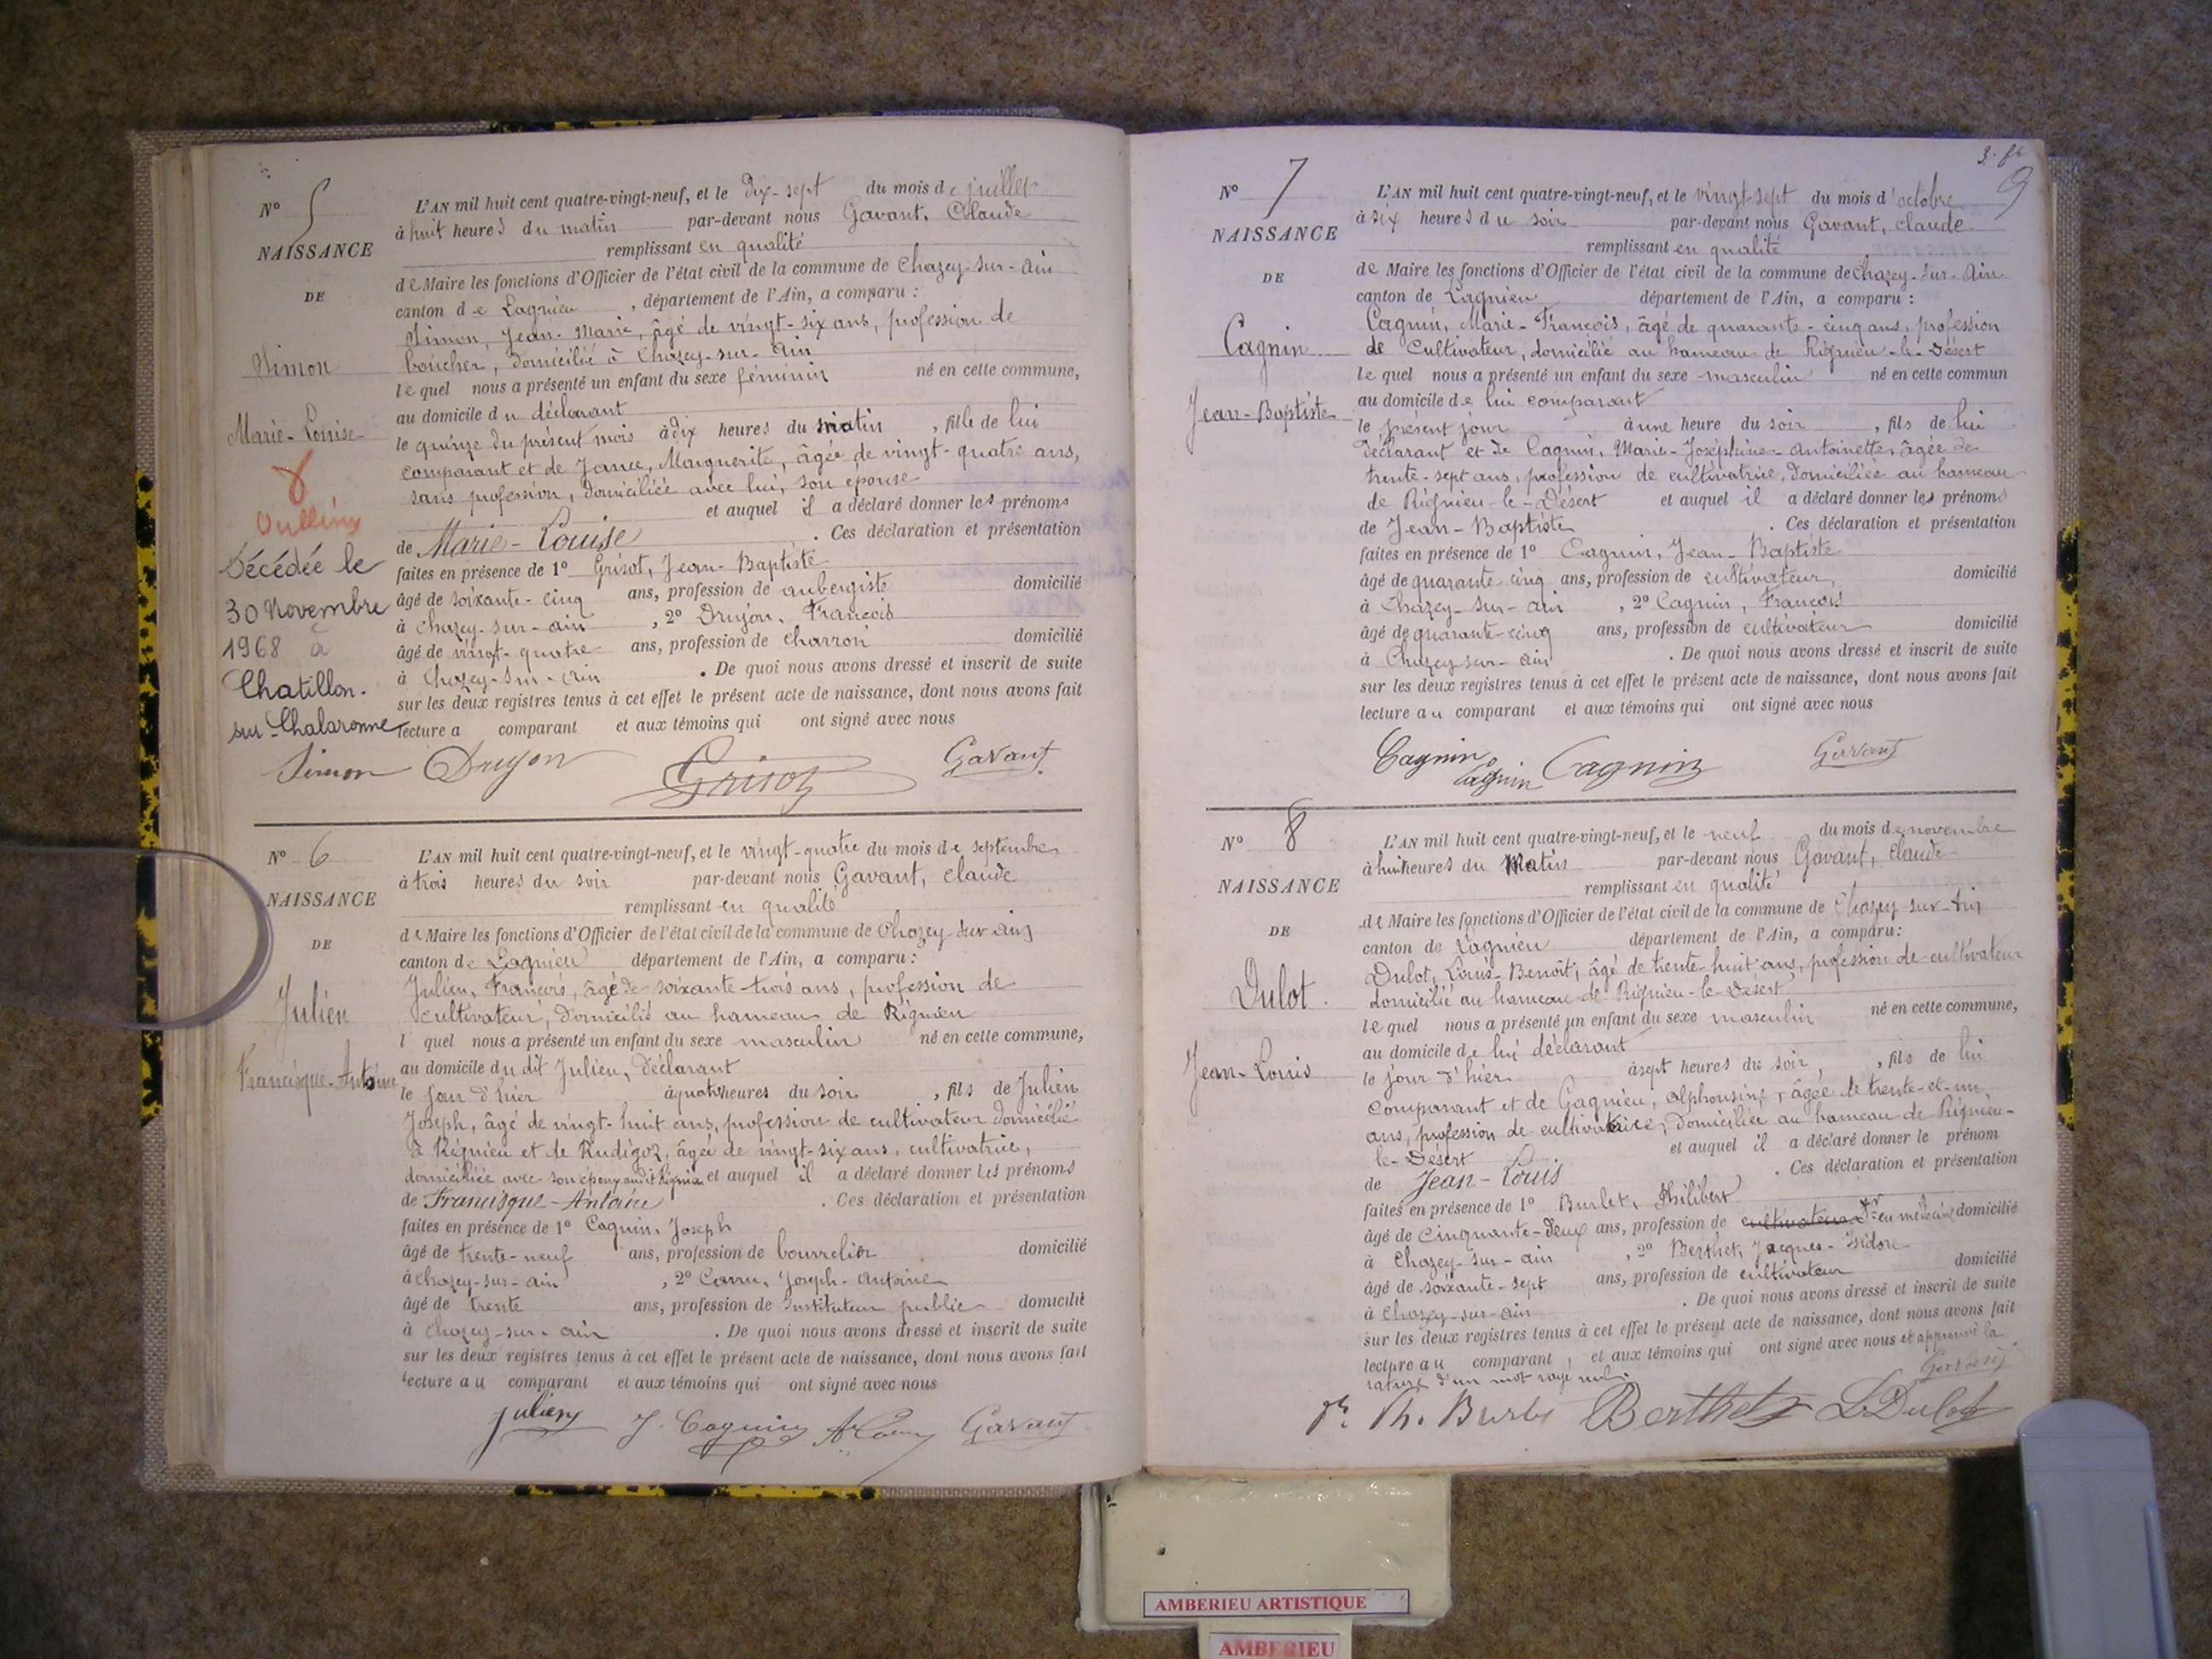 N° 5
NAISSANCE
DE
Simon
Marie-Louise
Oullins
Décédée le
30 Novembre
1968 à
Chatillon-
sur-Chalaronne
L'AN mil huit cent quatre-vingt-neuf, et le dix-sept du mois de juillet
à huit heures du matin par-devant nous Gavant, Claude
remplissant en qualité
de Maire les fonctions d'Officier de l'état civil de la commune de Chazey-sur-Ain
canton de Lagnieu, département de l'Ain, a comparu :
Simon, Jean-Marie, âgé de vingt-six ans, profession de
boucher, domicilié à Chazey-sur-Ain
lequel nous a présenté un enfant du sexe féminin né en cette commune,
au domicile du déclarant
le quinze du présent mois à dix heures du matin, fille de lui
comparant et de Marguerite, âgée de vingt-quatre ans,
sans profession, domiciliée avec lui, son épouse
et auquel il a déclaré donner les prénoms
de Marie-Louise. Ces déclaration et présentation
faites en présence de 1° Grisot, Jean-Baptiste
âgé de soixante-cinq ans, profession de aubergiste domicilié
à Chazey-sur-ain, 2° Drujon, François
âgé de vingt-quatre ans, profession de charron domicilié
à Chazey-sur-ain. De quoi nous avons dressé et inscrit de suite
sur les deux registres tenus à cet effet le présent acte de naissance, dont nous avons fait
lecture a comparant et aux témoins qui ont signé avec nous
Simon Drujon Grisot Gavant
N° 6
NAISSANCE
DE
Julien
Francisque-Antoine
L'AN mil huit cent quatre-vingt-neuf, et le vingt-quatre du mois de septembre
à trois heures du soir par-devant nous Gavant, Claude
remplissant en qualité
de Maire les fonctions d'Officier de l'état civil de la commune de Chazey-sur-ain
canton de Lagnieu département de l'Ain, a comparu :
Julien, François, âgé de soixante-trois ans, profession de
cultivateur, domicilié au hameau de Rignieu
l quel nous a présenté un enfant du sexe masculin né en cette commune,
au domicile du dit Julien, déclarant
le jour d'hier à quatre heures du soir, fils de Julien
Joseph, âgé de vingt-huit ans, profession de cultivateur domicilié
à Rignieu et de Rudigoz, âgée de vingt-six ans, cultivatrice,
domiciliée avec son époux au dit Rignieu et auquel il a déclaré donner les prénoms
de Francisque-Antoine. Ces déclaration et présentation
faites en présence de 1° Cagnin, Joseph
âgé de trente-neuf ans, profession de bourrelier domicilié
à chazey-sur-ain, 2° Joseph-Antoine
âgé de trente ans, profession de Instituteur public domicilié
à chazey-sur-ain. De quoi nous avons dressé et inscrit de suite
sur les deux registres tenus à cet effet le présent acte de naissance, dont nous avons fait
lecture au comparant et aux témoins qui ont signé avec nous
Julien J. Cagnin Gavant
9
N° 7
NAISSANCE
DE
Cagnin
Jean-Baptiste
L'AN mil huit cent quatre-vingt-neuf, et le vingt-sept du mois d'octobre
à six heures du soir par-devant nous Gavant, claude
remplissant en qualité
de Maire les fonctions d'Officier de l'état civil de la commune de Chazey-sur-Ain
canton de Lagnieu département de l'Ain, a comparu :
Cagnin, Marie-François, âgé de quarante-cinq ans, profession
de Cultivateur, domicilié au hameau de Rignieu-le-Désert
lequel nous a présenté un enfant du sexe masculin né en cette commun
au domicile de lui comparant
le présent jour à une heure du soir, fils de lui
déclarant et de Cagnin, Marie-Joséphine-Antoinette, âgée de
trente-sept ans, profession de cultivatrice, domiciliée au hameau
de Rignieu-le-Désert et auquel il a déclaré donner les prénoms
de Jean-Baptiste. Ces déclaration et présentation
faites en présence de 1° Cagnin, Jean-Baptiste
âgé de quarante-cinq ans, profession de cultivateur, domicilié
à Chazey-sur-ain, 2° Cagnin, François
âgé de quarante-cinq ans, profession de cultivateur domicilié
à Chazey-sur-ain. De quoi nous avons dressé et inscrit de suite
sur les deux registres tenus à cet effet le présent acte de naissance, dont nous avons fait
lecture au comparant et aux témoins qui ont signé avec nous
Cagnin Cagnin Cagnin Gavant
N° 8
NAISSANCE
DE
Dulot.
Jean-Louis
L'AN mil huit cent quatre-vingt-neuf, et le neuf du mois de novembre
à huit heures du Matin par-devant nous Gavant, claude
remplissant en qualité
de Maire les fonctions d'Officier de l'état civil de la commune de Chazey-sur-Ain
canton de Lagnieu département de l'Ain, a comparu:
Dulot, Louis-Benoît, âgé de trente-huit ans, profession de cultivateur
domicilié au hameau de Rignieu-le-Désert
lequel nous a présenté un enfant du sexe masculin né en cette commune,
au domicile de lui déclarant
le jour d'hier à sept heures du soir, fils de lui
comparant et de Gagnieu, alphonsine, âgée de trente-et-un
ans, profession de cultivatrice, domiciliée au hameau de Rignieu-
le-Désert et auquel il a déclaré donner le prénom
de Jean-Louis. Ces déclaration et présentation
faites en présence de 1° Burlet, Philibert
âgé de cinquante-deux ans, profession de cultivateur Dr en médecine domicilié
à Chazey-sur-ain, 2° Berthet, Jacques-Isidore
âgé de soixante-sept ans, profession de cultivateur domicilié
à Chazey-sur-ain. De quoi nous avons dressé et inscrit de suite
sur les deux registres tenus à cet effet le présent acte de naissance, dont nous avons fait
lecture au comparant, et aux témoins qui ont signé avec nous et approuvé la
rature d'un mot rayé nul. Gavant
Dr Ph. Burlet Berthet L. Dulot
AMBERIEU ARTISTIQUE
AMBERIEU